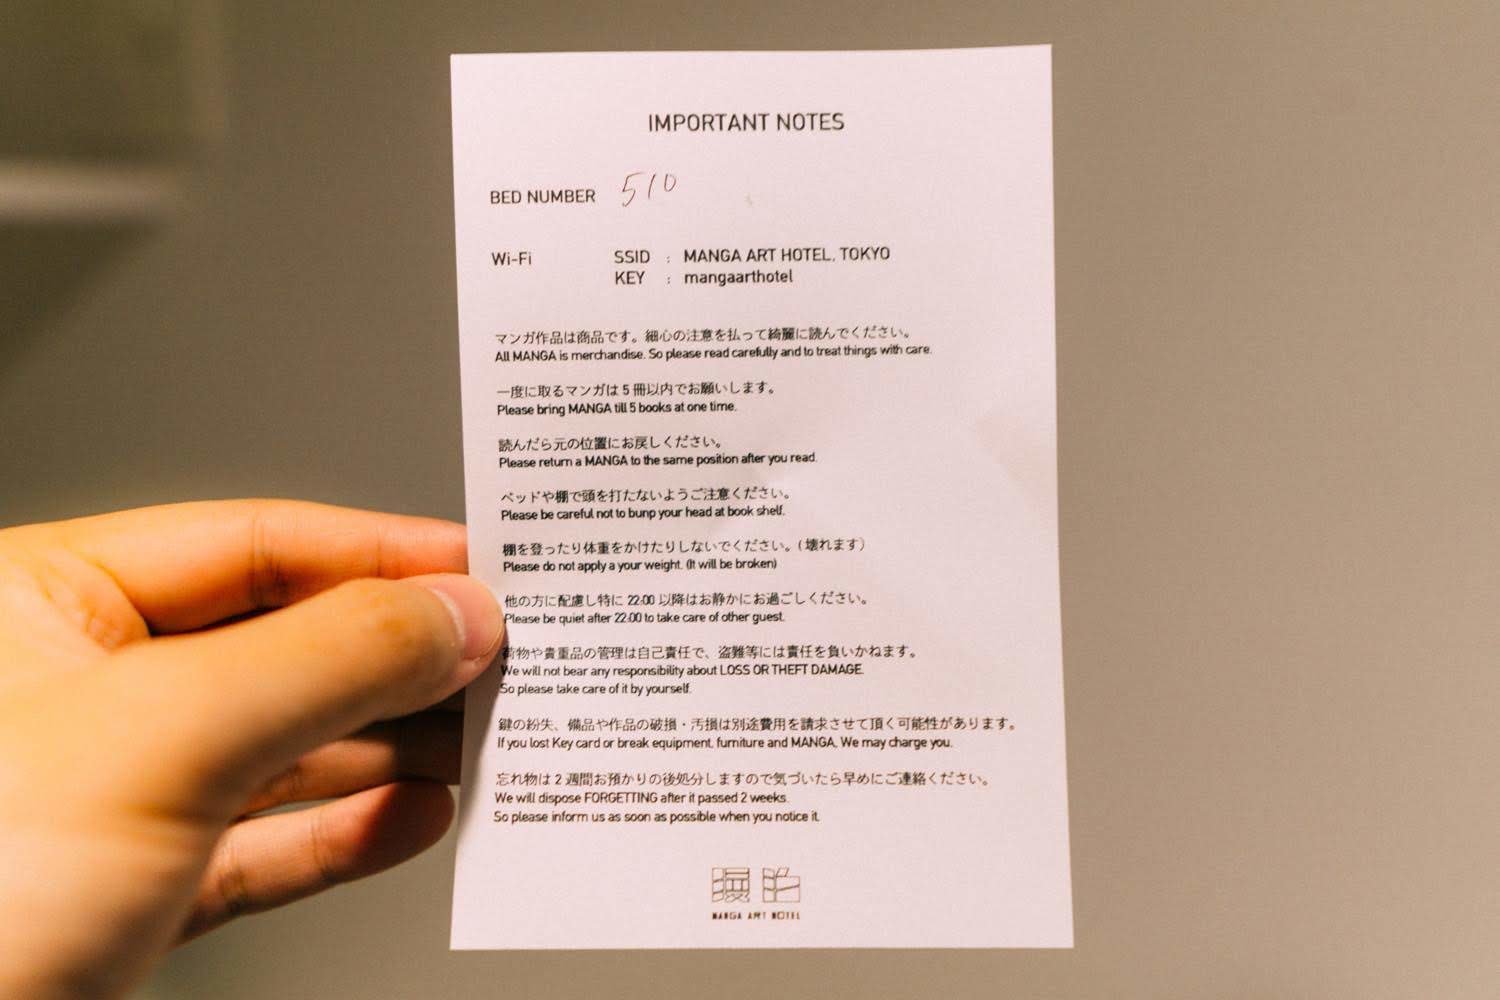 IMPORTANT NOTES
BED NUMBER 510
Wi-Fi SSID : MANGA ART HOTEL, TOKYO
KEY : mangaarthotel
マンガ作品は商品です。細心の注意を払って綺麗に読んでください。
All MANGA is merchandise. So please read carefully and to treat things with care.
一度に取るマンガは 5 冊以内でお願いします。
Please bring MANGA till 5 books at one time.
読んだら元の位置にお戻しください。
Please return a MANGA to the same position after you read.
ベッドや棚で頭を打たないようご注意ください。
Please be careful not to bunp your head at book shelf.
棚を登ったり体重をかけたりしないでください。( 壊れます）
Please do not apply a your weight. (It will be broken)
他の方に配慮し特に 22:00 以降はお静かにお過ごしください。
Please be quiet after 22:00 to take care of other guest.
荷物や貴重品の管理は自己責任で、盗難等には責任を負いかねます。
We will not bear any responsibility about LOSS OR THEFT DAMAGE.
So please take care of it by yourself.
鍵の紛失、備品や作品の破損・汚損は別途費用を請求させて頂く可能性があります。
If you lost Key card or break equipment, furniture and MANGA, We may charge you.
忘れ物は 2 週間お預かりの後処分しますので気づいたら早めにご連絡ください。
We will dispose FORGETTING after it passed 2 weeks.
So please inform us as soon as possible when you notice it.
MANGA ART HOTEL